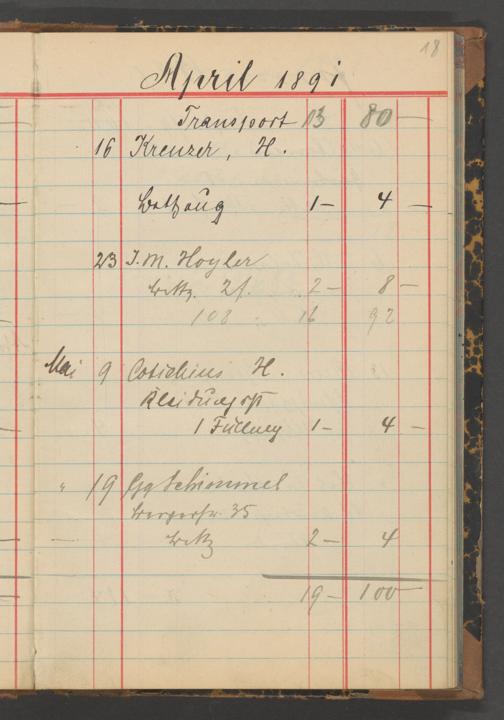 18
April 1891
Transport 13 80 —
16 Kreuzer, H.
1— 4 —
23 J. M. Hoyler
2— 8 —
108 16 92
Mai 9 H.
1 Füllung 1— 4 —
" 19 Gg Schimmel
35
2— 4
19— 100—